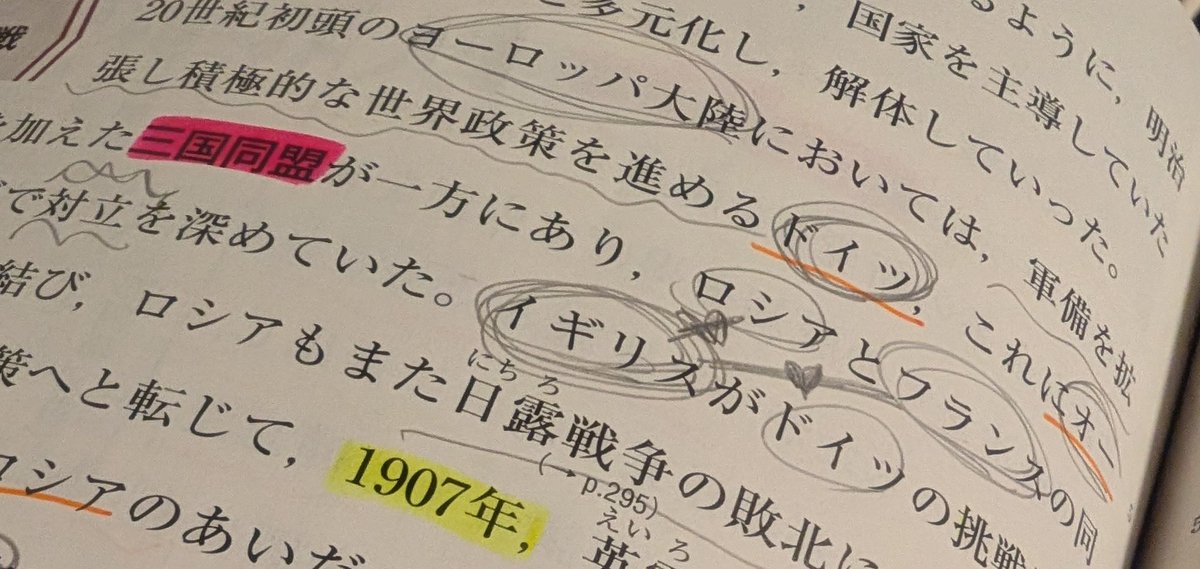 るように，明治
，国家を主導していた
と多元化し，解体していった。
戦
20世紀初頭のヨーロッパ大陸においては，軍備を拡
張し積極的な世界政策を進めるドイツ，これにオー
加えた三国同盟が一方にあり，ロシアとフランスの同
で対立を深めていた。イギリスがドイツの挑戦
にちろ
結び，ロシアもまた日露戦争の敗北に
(→p.295)
えいろ
策へと転じて，1907年，英
ロシアのあいだ